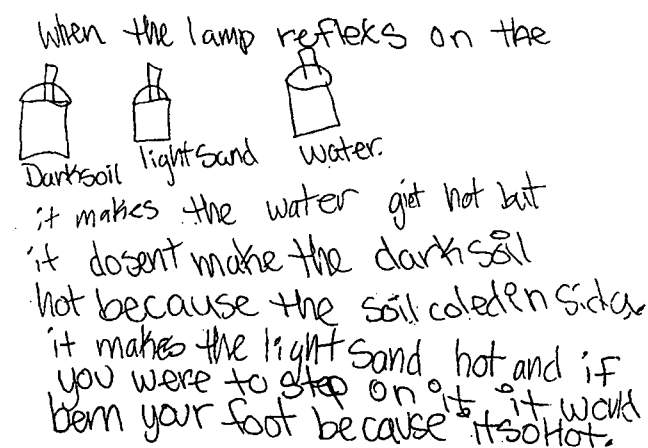 When the lamp refleks on the
Darksoil lightSand water.
it makes the water giet hot but
it dosent make the dark soil
hot because the soil coled in Sida
it makes the light Sand hot and if
you were to step on it it would
bern your foot because itsoHot.